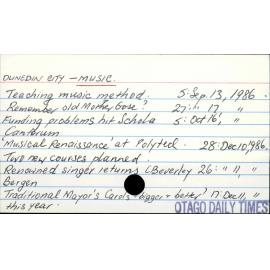 DUNEDIN CITY — MUSIC.
Teaching music method. 5: Sep. 13, 1986.
Remember old Mother Goose? 27: " 17 "
Funding problems hit Schola 5: Oct 16, "
Cantorum
'Musical Renaissance' at Polytech. 28: Dec 10, 1986.
Two new courses planned.
Renowned singer returns (Beverley 26: " 11, "
Bergen
Traditional Mayor's Carols "bigger + better" 17: Dec 11, "
this year.
OTAGO DAILY TIMES